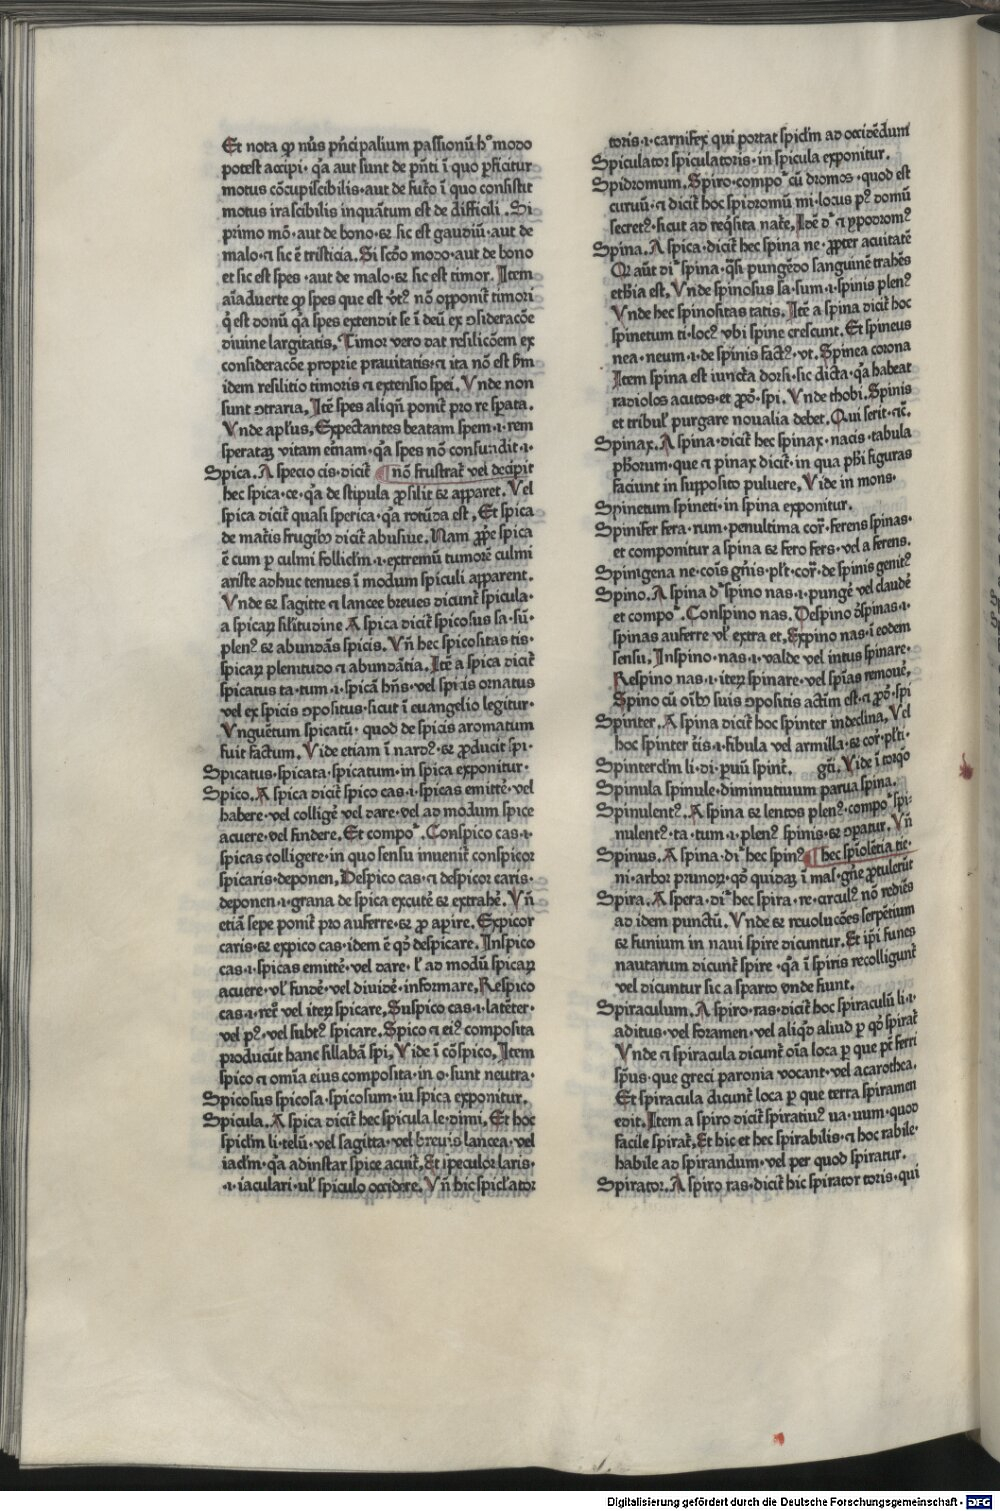 Et nota ꝙ nũs pñcipalium passionũ hͦ modo
potest accipi· q̃a aut sunt de pñti ĩ quo ꝑficitur
motus cõcupiscibilis·aut de futͦo ĩ quo consistit
motus irascibilis inquãtum est de difficili . Si
primo mõ·aut de bono·⁊ sic est gaudiũ·aut de
malo·⁊ sic ẽ tristicia. Si scďo modo·aut de bono
et sic est spes·aut de malo·⁊ sic est timor. Item
aĩaduerte ꝙ spes que est v̓tꝰ nõ opponit̃ timori
q̓ est donũ q̃a spes extendit se ĩ deũ ex ↄsideracõe
diuine largitatis, Timor vero dat resilicõem ex
consideracõe proprie prauitatis·⁊ ita nõ est ẜm
idem resilitio timoris ⁊ extensio spei. Vnde non
sunt ↄtraria, Itẽ spes aliqñ ponit̃ pro re sp̱ata.
Vnde ap̃lus, Expectantes beatam spem·ı·rem
speratã vitam et̃nam·q̃a spes nõ confundit·ı·
Spica. A specio cis·dicit̃ ¶ nõ frustrat̃ vel decipit
hec spica·ce·q̃a de stipula ꝓsilit ⁊ apparet. Vel
spica dicit̃ quasi sperica·q̃a rotũda est, Et spica
de mat̃is frugib⁊ dicit̃ abusiue. Nam ꝓp̃e spica
ẽ cum ꝑ culmi follicl̃m·ı·extremũ tumorẽ culmi
ariste adhuc tenues ĩ modum spiculi apparent.
Vnde ⁊ sagitte ⁊ lancee breues dicunt̃ spicula·
a spicaꝝ sil̃itudine A spica dicit̃ spicosus sa·sũ·
plenꝰ ⁊ abundãs spicis. Vñ hec spicositas tis·
spicaꝝ plenitudo ⁊ abundãtia. Itẽ a spica dicit̃
spicatus ta·tum·ı·spicã hñs·vel spicis ornatus
vel ex spicis ↄpositus·sicut ĩ euangelio legitur·
Vnguẽtum spicatũ· quod de spicis aromatum
fuit factum. Vide etiam ĩ nardꝰ·⁊ ꝓducit spi·
Spicatus·spicata·spicatum·in spica exponitur·
Spico. A spica dicit̃ spico cas·ı·spicas emitte̓·vel
habere·vel collige̓ vel dare·vel ad modum spice
acuere·vel findere. Et compoᷓ. Conspico cas·ı·
spicas colligere·in quo sensu inuenit̃ conspicor
spicaris·deponen, Despico cas·⁊ despicor caris·
deponen·ı·grana de spica excute̓ ⁊ extrahe̓. Vñ
etiã sepe ponit̃ pro auferre·⁊ ꝓ apire. Expicor
caris·⁊ expico cas·idem ẽ qͦ despicare. Inspico
cas·ı·spicas emitte̓·vel dare· ł ad modũ spicaꝝ
acuere·vł funde̓·vel diuide̓·informare, Respico
cas·ı·ret̃ vel iteꝝ spicare, Suspico cas·ı·latẽter·
vel pꝰ·vel subtꝰ spicare. Spico ⁊ eiꝰ composita
producũt hanc sillabã spi, Vide ĩ cõspico, Item
spico ⁊ omĩa eius composita·in o·sunt neutra·
Spicosus spicosa·spicosum·in spica exponitur.
Spicula. A spica dicit̃ hec spicula·le·dimi, Et hoc
spicl̃m li·telũ·vel sagitta·vel breuis lancea·vel
iacl̃m·q̃a adinstar spice acuit̃, Et speculor laris·
·ı·iaculari·vł spiculo occidere, Vñ hic spicl̃ator
toris·ı·carnifex qui portat spicl̃m ad occidẽdum
Spiculator spiculatoris·in spicula exponitur.
Spidromum. Spiro·compoᷓ cũ dromos·quod est
curuũ·⁊ dicit̃ hoc spidromũ mi·locus pꝰ domũ
secretꝰ·sicut ad req̓sita nat̃e, Idẽ dᷓ ⁊ ypodromꝰ
Spina. A spica·dicit̃ hec spina ne·ꝓpter acuitatẽ
Qr aũt diᷓ spina·q̃si pungẽdo sanguinẽ trahẽs
ethĩa est, Vnde spinosus sa·sum·ı·spinis plenꝰ
Vnde hec spinositas tatis. Itẽ a spina dicit̃ hoc
spinetum ti·locꝰ vbi spine crescunt. Et spineus
nea·neum·ı·de spinis factꝰ·vt. Spinea corona
Item spina est iuncta dorsi·sic dicta·q̃a habeat
radiolos acutos·et ꝓõ·spi. Vnde thobi. Spinis
et tribuł purgare noualia debet. Qui serit·⁊c̃.
Spinax. A spina·dicit̃ hec spinax·nacis·tabula
pħotum·que ⁊ pinax dicit̃·in qua pħi figuras
faciunt in supposito puluere, Vide in mons·
Spinetum spineti·in spina exponitur.
Spinifer fera·rum·penultima cor̃·ferens spinas·
et componitur a spina ⁊ fero fers·vel a ferens.
Spinigena ne·cõis gñis·pl̃t·cor̃·de spinis genitꝰ
Spino. A spina dᷓ spino nas·ı·punge̓ vel claude̓
et compoᷓ. Conspino nas. Despino d̓spinas·ı·
spinas auferre vł extra et, Expino nas·ĩ eodem
sensu. Inspino·nas·ı·valde vel intus spinare·
Respino nas·ı·iteꝝ spinare·vel spĩas remoue̓,
Spino cũ oĩb⁊ suis ↄpositis actĩm est·⁊ ꝓõ·spi
Spinter. A spina dicit̃ hoc spinter indeclina, Vel
hoc spinter t̃is·ı·fibula vel armilla·⁊ cor̃·pl̃ti·
Spintercl̃m li·di·ꝑuũ spint̃. gt̃i. Vide ĩ torqͦ
Spinula spinule·diminutiuum parua spina.
Spinulentꝰ. A spina ⁊ lentos plenꝰ·compoᷓ spi·
nulentꝰ·ta·tum·ı·plenꝰ spinis·⁊ ↄparatur. Vñ
Spinus. A spina·diᷓ hec spinꝰ ¶ hec spĩolẽtia tie·
ni·arbor prunoꝝ·qͦ quidaꝫ ĩ mas·gñe ꝓtulerũt
Spira. A spera·diᷓ hec spira·re·circulꝰ nõ rediẽs
ad idem punctũ. Vnde ⁊ reuolucões serpẽtium
⁊ funium in naui spire dicuntur. Et ipĩ funes
nautarum dicunt̃ spire·q̃a ĩ spiris recolligunt̃
vel dicuntur sic a sparto vnde fiunt.
Spiraculum. A spiro·ras·dicit̃ hoc spiraculũ li·ı·
aditus·vel foramen·vel aliqͩ aliud ꝑ qͦ spirat̃
Vnde ⁊ spiracula dicunt̃ oĩa loca ꝑ que pẽ ferri
sp̃us·que greci paronia vocant·vel acarothea.
Et spiracula dicunt̃ loca ꝑ que terra spiramen
edit. Item a spiro dicit̃ spiratiuꝰ ua·uum·quod
facile spirat̃, Et hic et hec spirabilis·⁊ hoc rabile·
habile ad spirandum·vel per quod spiratur.
Spirator. A spiro ras·dicit̃ hic spirator toris·qui
Digitalisierung gefördert durch die Deutsche Forschungsgemeinschaft - DFG